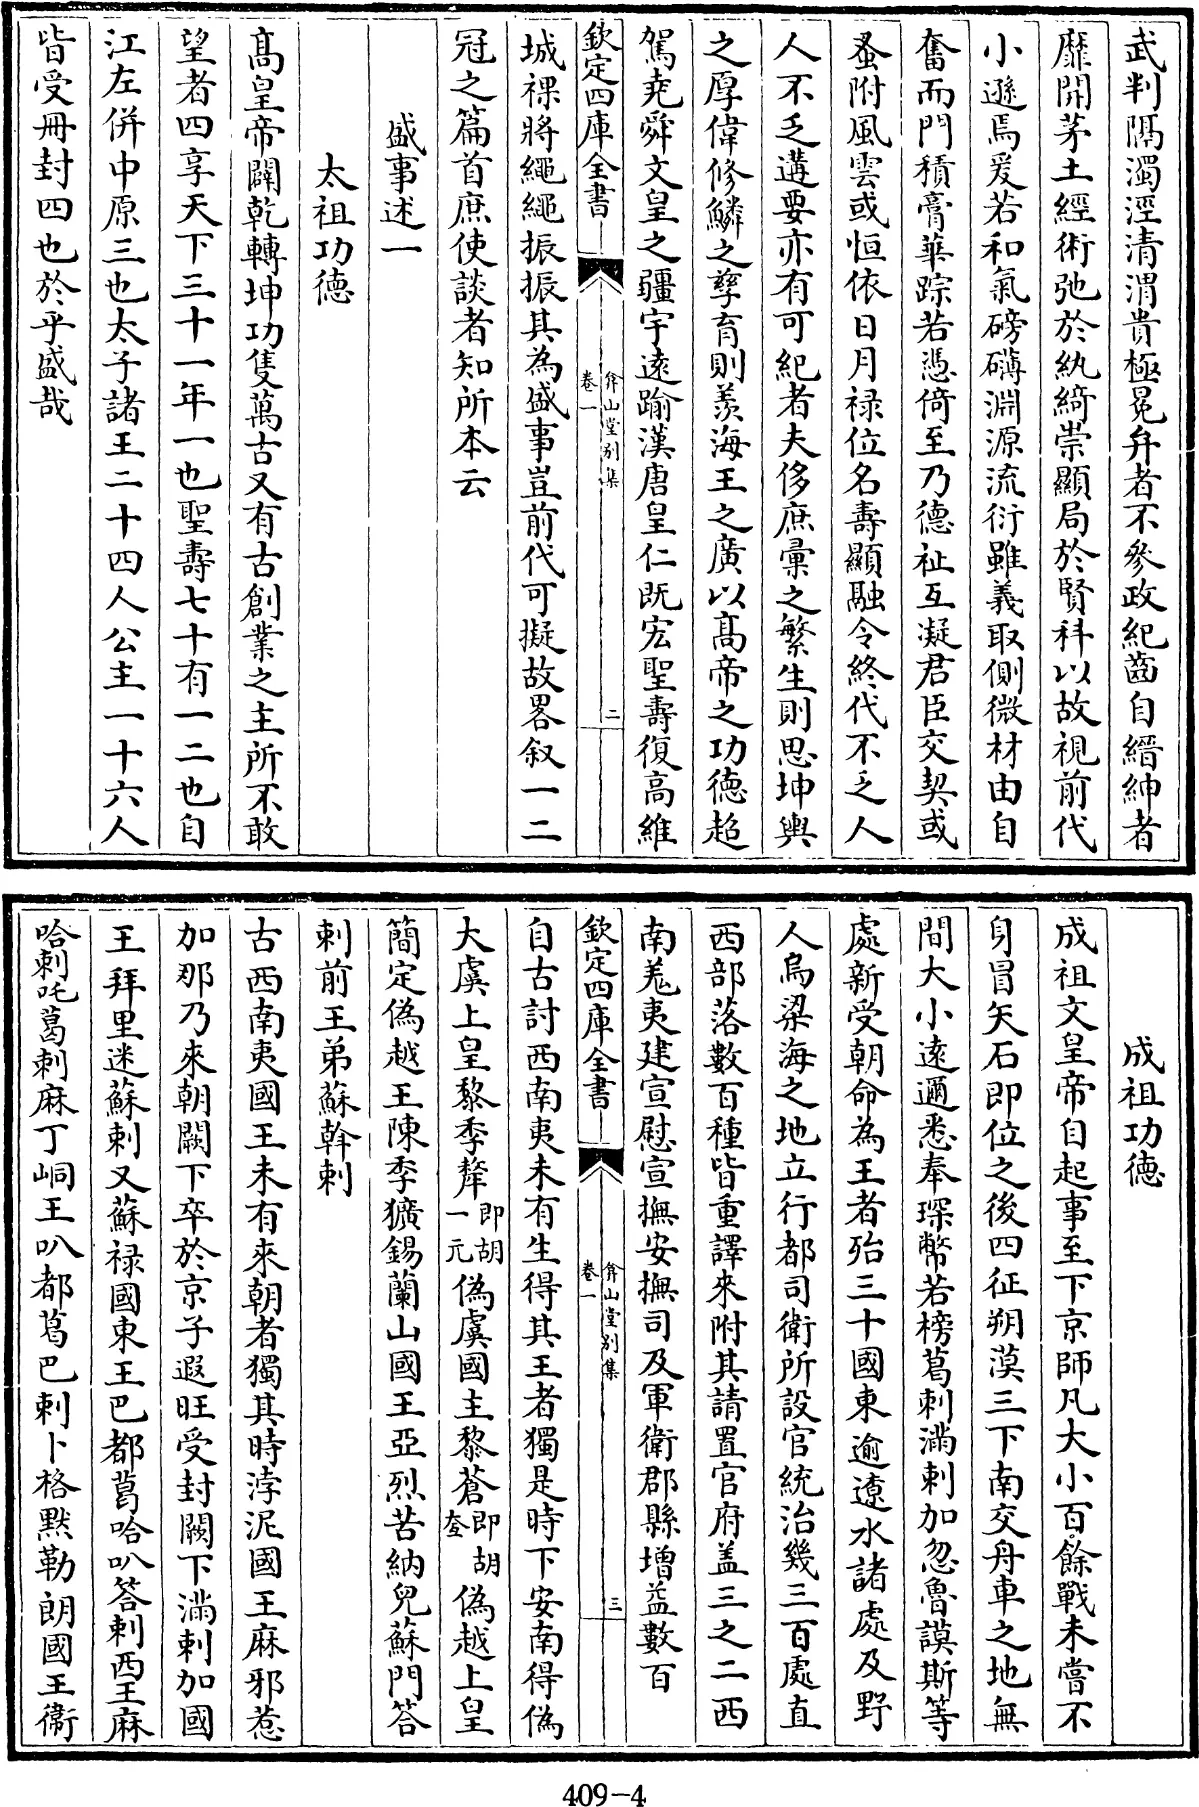 武判隔濁涇清渭貴極冕弁者不參政紀齒自縉紳者
靡開茅土經術弛於紈綺崇顯局於賢科以故視前代
小遜焉爰若和氣磅礴淵源流衍雖義取側微材由自
奮而門積膏華踪若憑倚至乃德祉互凝君臣交契或
蚤附風雲或恒依日月禄位名壽顯融令終代不乏人
人不乏遘要亦有可紀者夫侈庶彙之繁生則思坤輿
之厚偉修鱗之孳育則羨海王之廣以高帝之功德超
駕堯舜文皇之疆宇逺踰漢唐皇仁既宏聖壽復高維
欽定四庫全書
弇山堂别集
卷一
二
城祼將繩繩振振其為盛事豈前代可擬故畧叙一二
冠之篇首庶使談者知所本云
盛事述一
太祖功德
髙皇帝闢乾轉坤功隻萬古又有古創業之主所不敢
望者四享天下三十一年一也聖壽七十有一二也自
江左併中原三也太子諸王二十四人公主一十六人
皆受冊封四也於乎盛哉
成祖功德
成祖文皇帝自起事至下京師凡大小百餘戰未嘗不
身冒矢石即位之後四征朔漠三下南交舟車之地無
間大小逺邇悉奉琛幣若榜葛刺滿刺加忽魯謨斯等
處新受朝命為王者殆三十國東逾遼水諸處及野
人烏梁海之地立行都司衛所設官統治幾三百處直
西部落數百種皆重譯來附其請置官府盖三之二西
南羗夷建宣慰宣撫安撫司及軍衛郡縣增益數百
欽定四庫全書
弇山堂别集
卷一
三
自古討西南夷未有生得其王者獨是時下安南得偽
大虞上皇黎季犛即胡一元偽虞國主黎蒼即胡𡗨偽越上皇
簡定偽越王陳季獷錫蘭山國王亞烈苦納兒蘇門答
刺前王弟蘇幹刺
古西南夷國王未有來朝者獨其時浡泥國王麻邪惹
加那乃來朝闕下卒於京子遐旺受封闕下滿刺加國
王拜里迷蘇刺又蘇禄國東王巴都葛哈叭答刺西王麻
哈刺吒葛刺麻丁峒王叭都葛巴刺卜格黙勒朗國王衞
409-4